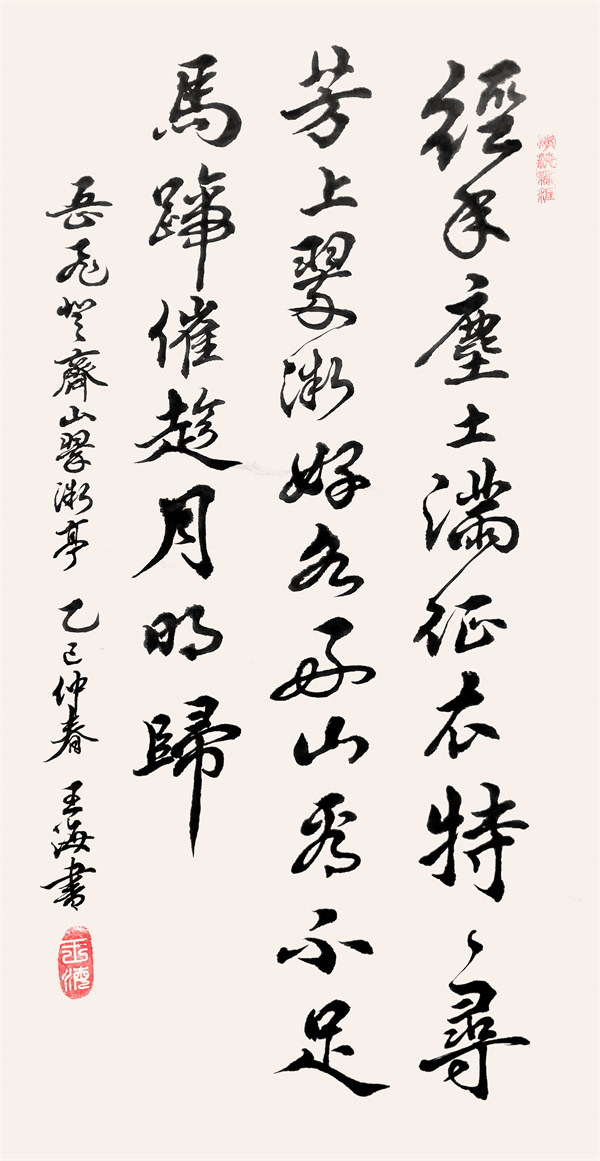 經年塵土滿征衣特〻尋
芳上翠微好水好山看不足
馬蹄催趁月明歸
岳飛登齊山翠微亭 乙巳仲春 王海書
王海